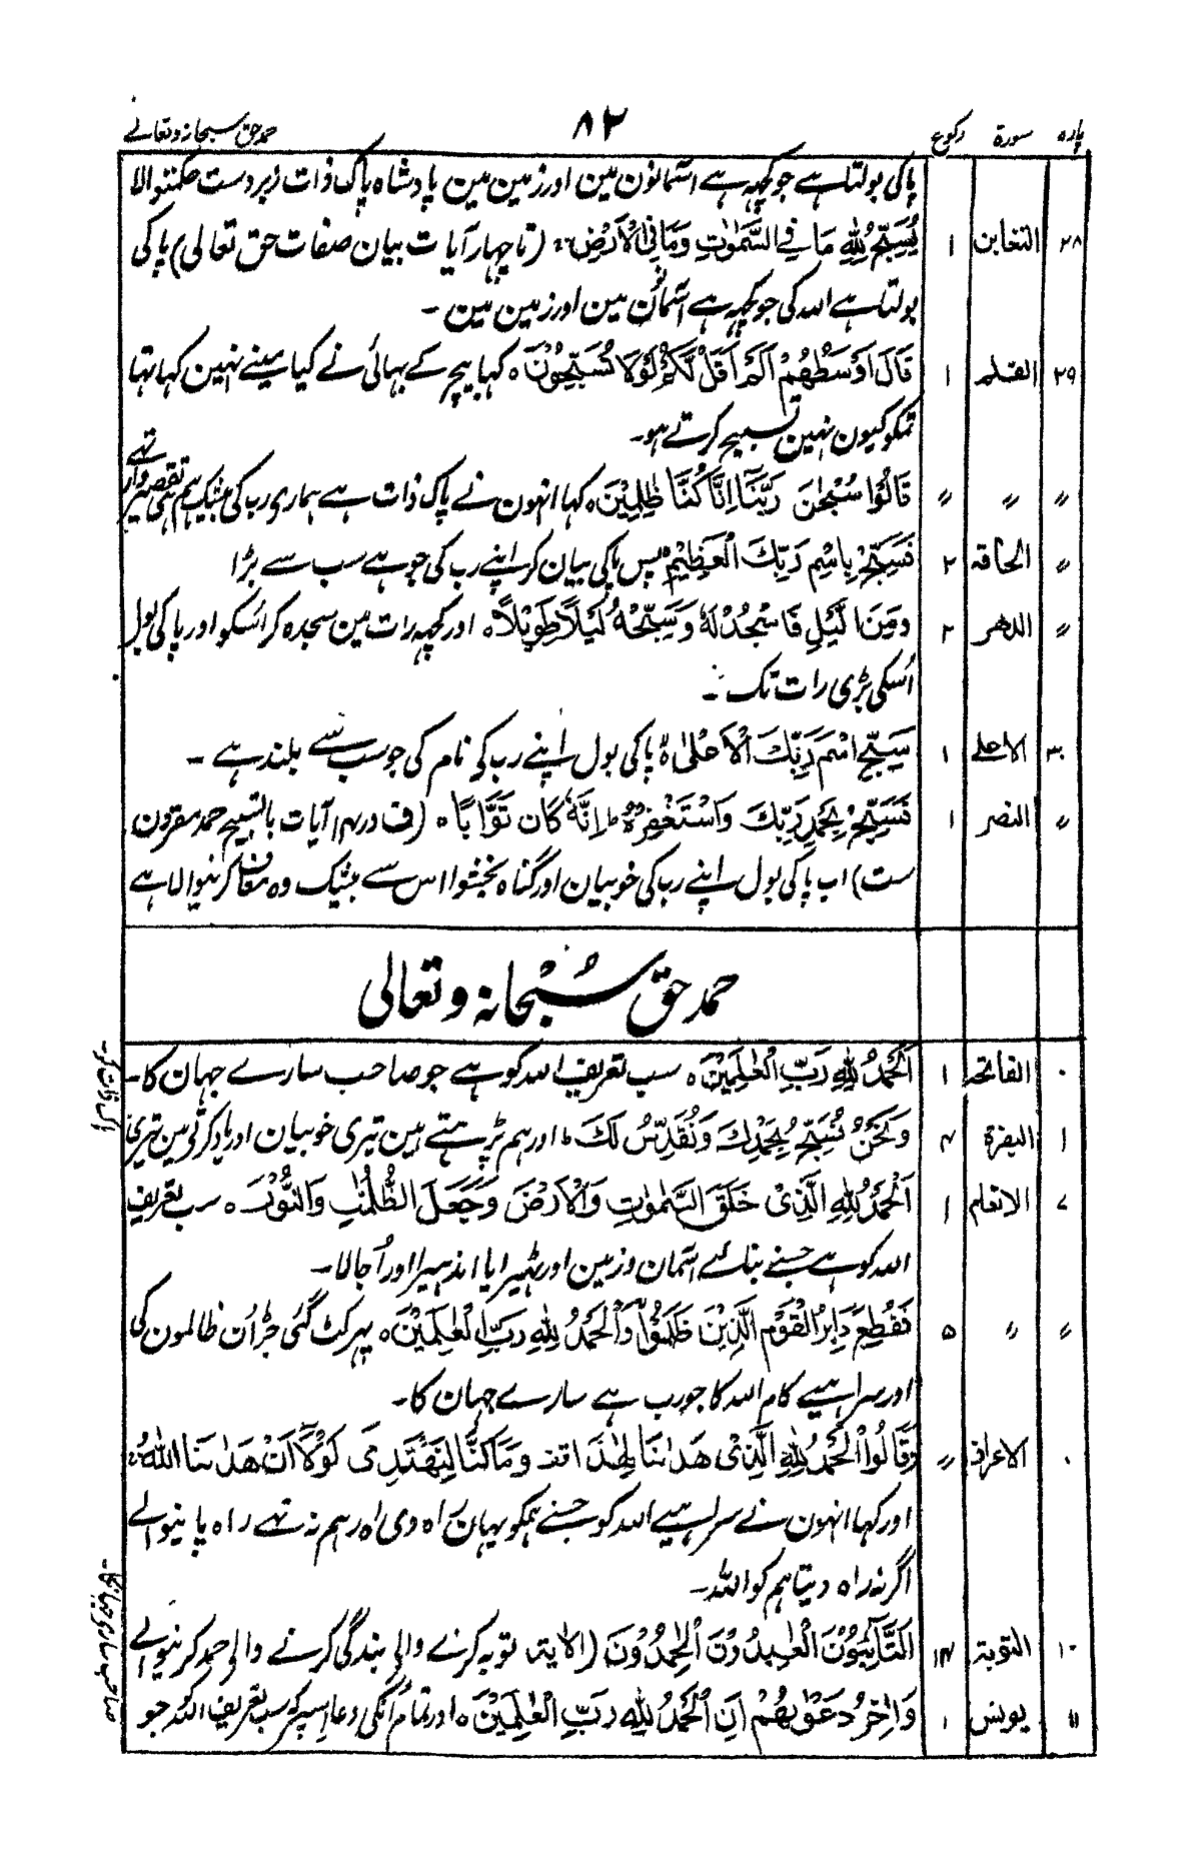 پارہ سورۃ رکوع ۸۲ حمد حق سبحانہ و تعالےٰ
پاکی بولتا ہے جو کچھہ ہے آسمانون مین اور زمین مین پادشاہ پاک ذات زبردست حکمتوالا
۲۸ التغابن ۱ يُسَبِّحُ لِلّٰهِ مَا فِي السَّمٰوٰتِ وَمَا فِي الْاَرْضِ (تا چہار آیات بیان صفات حق تعالی) پاکی
بولتا ہے اللہ کی جو کچھہ ہے آسمانون مین اور زمین مین ۔
۲۹ القلم ۱ قَالَ اَوْسَطُهُمْ اَلَمْ اَقُلْ لَّكُمْ لَوْلَا تُسَبِّحُوْنَ ہ کہا بیچ کے بہائی نے کیا مینے نہین کہا تہا
تمکو کیون نہین تسبیح کرتے ہو۔
〃 〃 〃 قَالُوْا سُبْحٰنَ رَبِّنَا اِنَّا كُنَّا ظٰلِمِيْنَ ہ کہا انہون نے پاک ذات ہے ہماری رب کی بیشک ہم ہی تقصیروار تہے
〃 الحاقہ ۲ فَسَبِّحْ بِاسْمِ رَبِّكَ الْعَظِيْمِ پس پاکی بیان کر اپنے رب کی جو ہے سب سے بڑا
〃 الدهر ۲ وَمِنَ الَّيْلِ فَاسْجُدْ لَهٗ وَسَبِّحْهُ لَيْلًا طَوِيْلًا ہ اور کچھہ رات مین سجدہ کر اُسکو اور پاکی بول
اُسکی بڑی رات تک ۔
۳۰ الاعلے ۱ سَبِّحِ اسْمَ رَبِّكَ الْاَعْلٰى ہ پاکی بول اپنے رب کی نام کی جو سب سے بلند ہے ۔
〃 النصر ۱ فَسَبِّحْ بِحَمْدِ رَبِّكَ وَاسْتَغْفِرْهُ ط اِنَّهٗ كَانَ تَوَّابًا ہ (ف درہم آیات بالتسبیح حمد مقرون
ست) اب پاکی بول اپنے رب کی خوبیان اور گناہ بخشوا اس سے بیشک وہ معاف کرنیوالا ہے
حمد حق سُبْحانہ و تعالی
۰ الفاتحہ ۱ اَلْحَمْدُ لِلّٰهِ رَبِّ الْعٰلَمِيْنَ ہ سب تعریف اللہ کو ہے جو صاحب سارے جہان کا۔
۱ البقرۃ ۴ وَنَحْنُ نُسَبِّحُ بِحَمْدِكَ وَنُقَدِّسُ لَكَ ط اور ہم پڑہتے ہین تیری خوبیان اور یاد کرتے ہین تیری
پاک ذات کو۔
۷ الانعام ۱ اَلْحَمْدُ لِلّٰهِ الَّذِيْ خَلَقَ السَّمٰوٰتِ وَالْاَرْضَ وَجَعَلَ الظُّلُمٰتِ وَالنُّوْرَ ہ سب تعریف
اللہ کو ہے جسنے بنائے آسمان و زمین اور ٹھیرایا اندہیرا اور اُجالا۔
〃 〃 ۵ فَقُطِعَ دَابِرُ الْقَوْمِ الَّذِيْنَ ظَلَمُوْا وَالْحَمْدُ لِلّٰهِ رَبِّ الْعٰلَمِيْنَ ہ پہر کٹ گئی جڑ اُن ظالمون کی
اور سراہیے کام اللہ کا جو رب ہے سارے جہان کا۔
۰ الاعراف 〃 وَقَالُوا الْحَمْدُ لِلّٰهِ الَّذِيْ هَدٰىنَا لِهٰذَا قف وَمَا كُنَّا لِنَهْتَدِيَ لَوْلَا اَنْ هَدٰىنَا اللّٰهُ
اور کہا انہون نے سراہیے اللہ کو جسنے ہمکو یہان راہ دی اور ہم نہ تہے راہ پانیوالے
اگر نہ راہ دیتا ہم کو اللہ۔
۱۰ التوبۃ ۱۴ اَلتَّآئِبُوْنَ الْعٰبِدُوْنَ الْحٰمِدُوْنَ (الآیۃ توبہ کرنے والی بندگی کرنے والی حمد کرنیوالے
۱۱ یونس ۱ وَاٰخِرُ دَعْوٰىهُمْ اَنِ الْحَمْدُ لِلّٰهِ رَبِّ الْعٰلَمِيْنَ ہ اور تمام اُنکی دعا اسپر کہ سب تعریف اللہ جو
صاحب سارے جہان کا۔